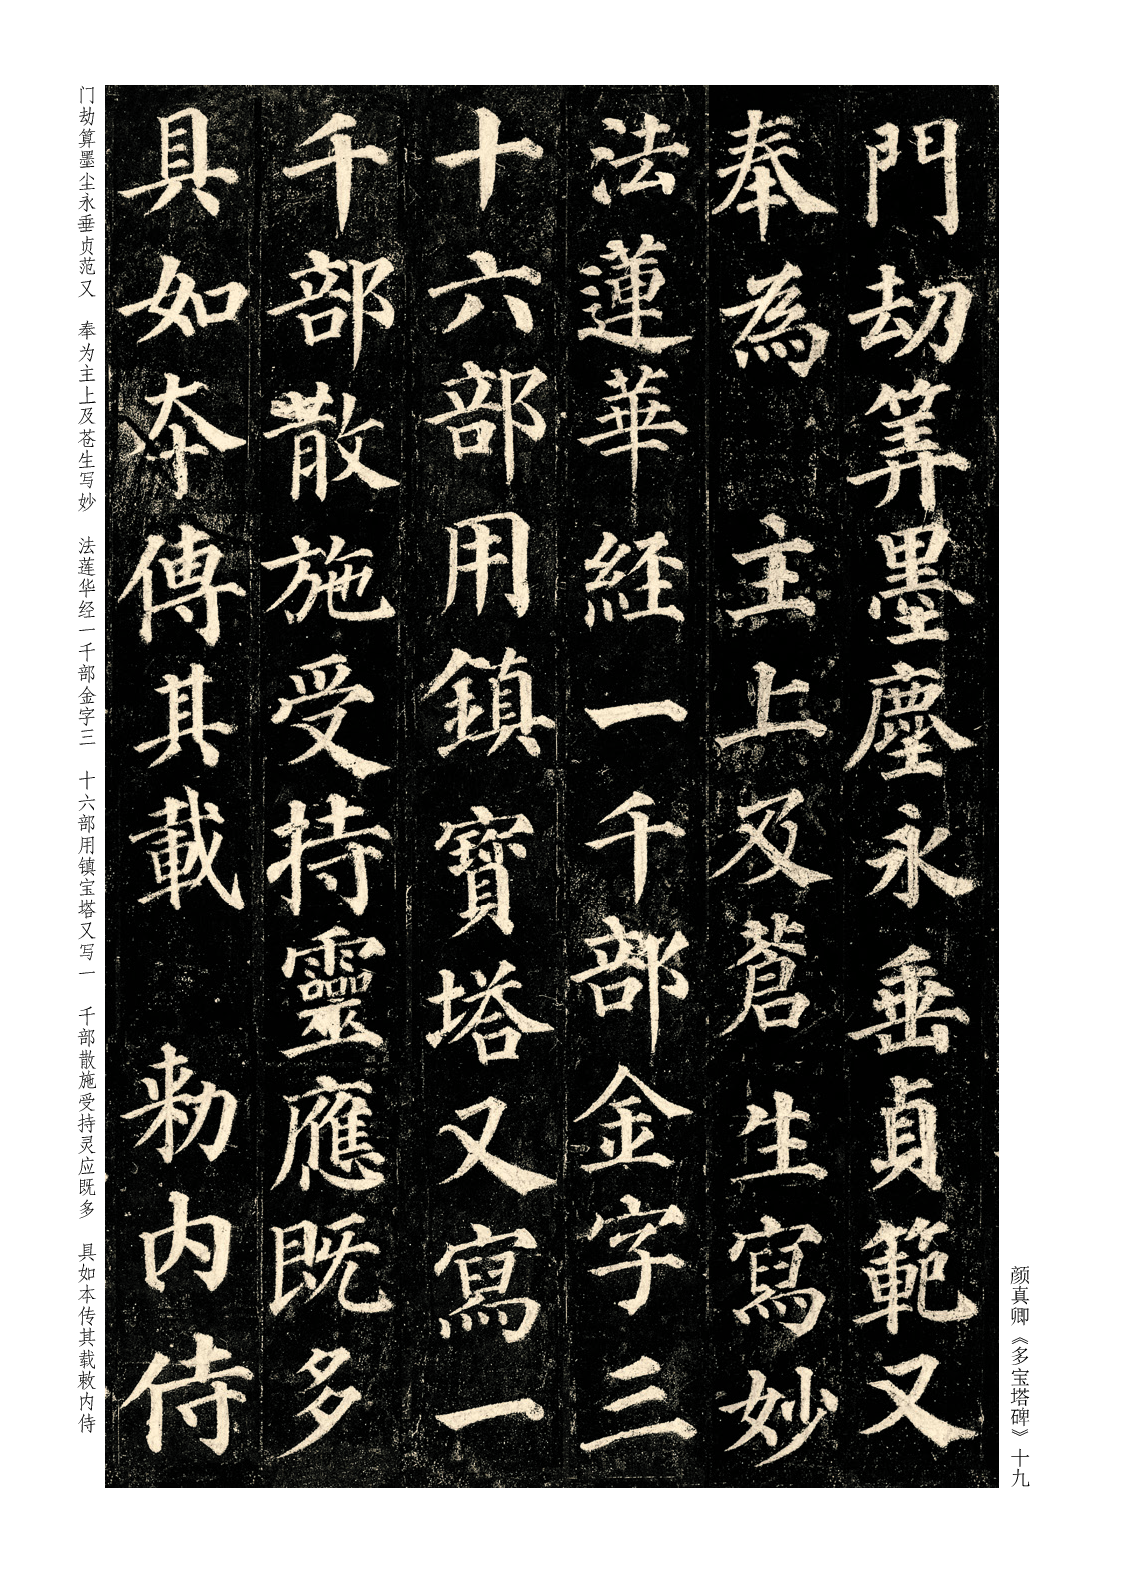 颜真卿《多宝塔碑》十九
門劫筭墨塵永垂貞範又
奉為主上及蒼生寫妙
法蓮華經一千部金字三
十六部用鎮寶塔又寫一
千部散施受持靈應既多
具如本傳其載敕内侍
门劫算墨尘永垂贞范又 奉为主上及苍生写妙 法莲华经一千部金字三 十六部用镇宝塔又写一 千部散施受持灵应既多 具如本传其载敕内侍